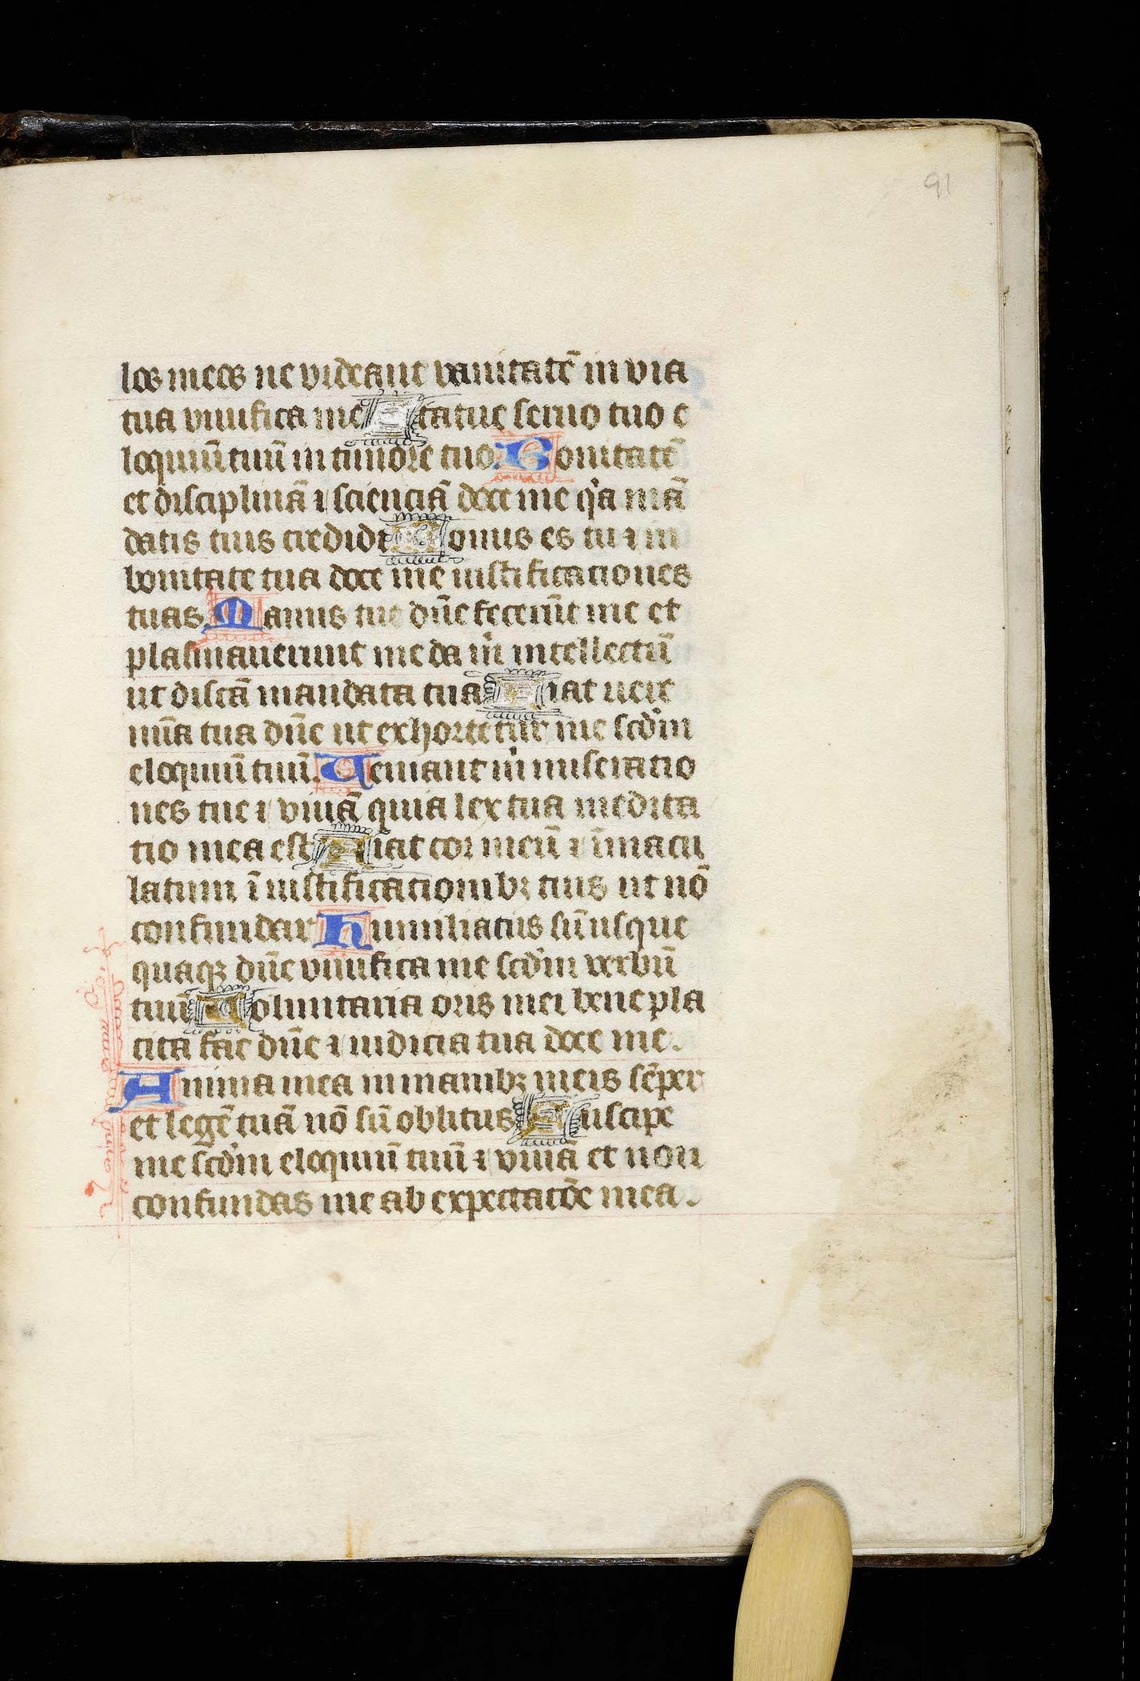 91
los meos ne videant vanitatē in via
tua viuifica me Statue seruo tuo e
loquiū tuū in timore tuo. Bonitatē
et disciplinā ⁊ scienciā doce me qͥa mā
datis tuis credidi Bonus es tu ⁊ in
bonitate tua doce me iustificationes
tuas Manus tue dn̄e fecerūt me et
plasmauerunt me da m̄ intellectū
ut discā mandata tua Fiat uere
mn̄a tua dn̄e ut exhortetur me scdm̄
eloquiū tuū. Veniant m̄ miseratio
nes tue ⁊ viuā quia lex tua medita
tio mea est Fiat cor meū ⁊ īmacu
latum ī iustificationibꝫ tuis ut nō
confundar Humiliatus sū usque
quaqꝫ dn̄e viuifica me scdm̄ verbū
tuū Voluntaria oris mei bene pla
cita fac dn̄e ⁊ iudicia tua doce me.
Anima mea in manibꝫ meis sēper
et legē tuā nō sū oblitus Suscipe
me scdm̄ eloquiū tuū ⁊ viuā et non
confundas me ab expectatōe mea.